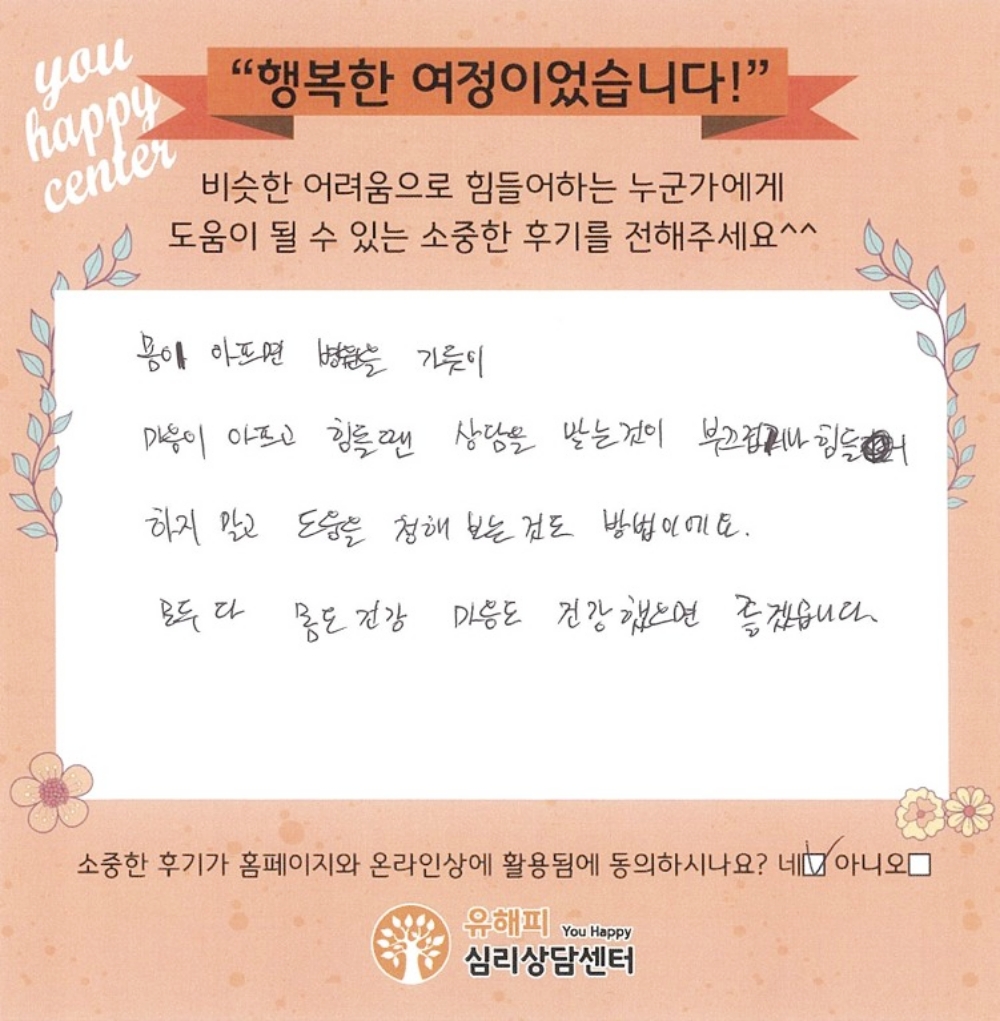 you
happy
center
“행복한 여정이었습니다!”
비슷한 어려움으로 힘들어하는 누군가에게
도움이 될 수 있는 소중한 후기를 전해주세요^^
몸이 아프면 병원을 가듯이
마음이 아프고 힘들땐 상담을 받는것이 부끄럽거나 힘들어
하지 말고 도움을 청해 보는 것도 방법이에요.
모두 다 몸도 건강 마음도 건강했으면 좋겠습니다.
소중한 후기가 홈페이지와 온라인상에 활용됨에 동의하시나요? 네☑ 아니오☐
유해피 You Happy
심리상담센터